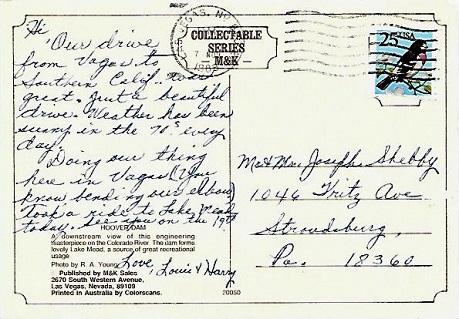 Hi
Our drive
from Vegas to
Southern Calif. was
great. Just a beautiful
drive. Weather has been
sunny in the 70's every
day.
Doing our thing
here in Vegas (You
know bending our elbow)
Took a ride to Lake Mead
today. See you on the 19th
Love,
Louis & Harry
HOOVER DAM
A downstream view of this engineering
masterpiece on the Colorado River. The dam forms
lovely Lake Mead, a source of great recreational
usage
Photo by R. A. Young
Published by M&K Sales
2670 South Western Avenue,
Las Vegas, Nevada, 89109
Printed in Australia by Colorscans.
20050
COLLECTABLE
SERIES
M&K
LAS VEGAS, NV
25 USA
Mr & Mrs. Joseph Shelby
1046 Fritz Ave
Stroudsburg,
Pa. 18360